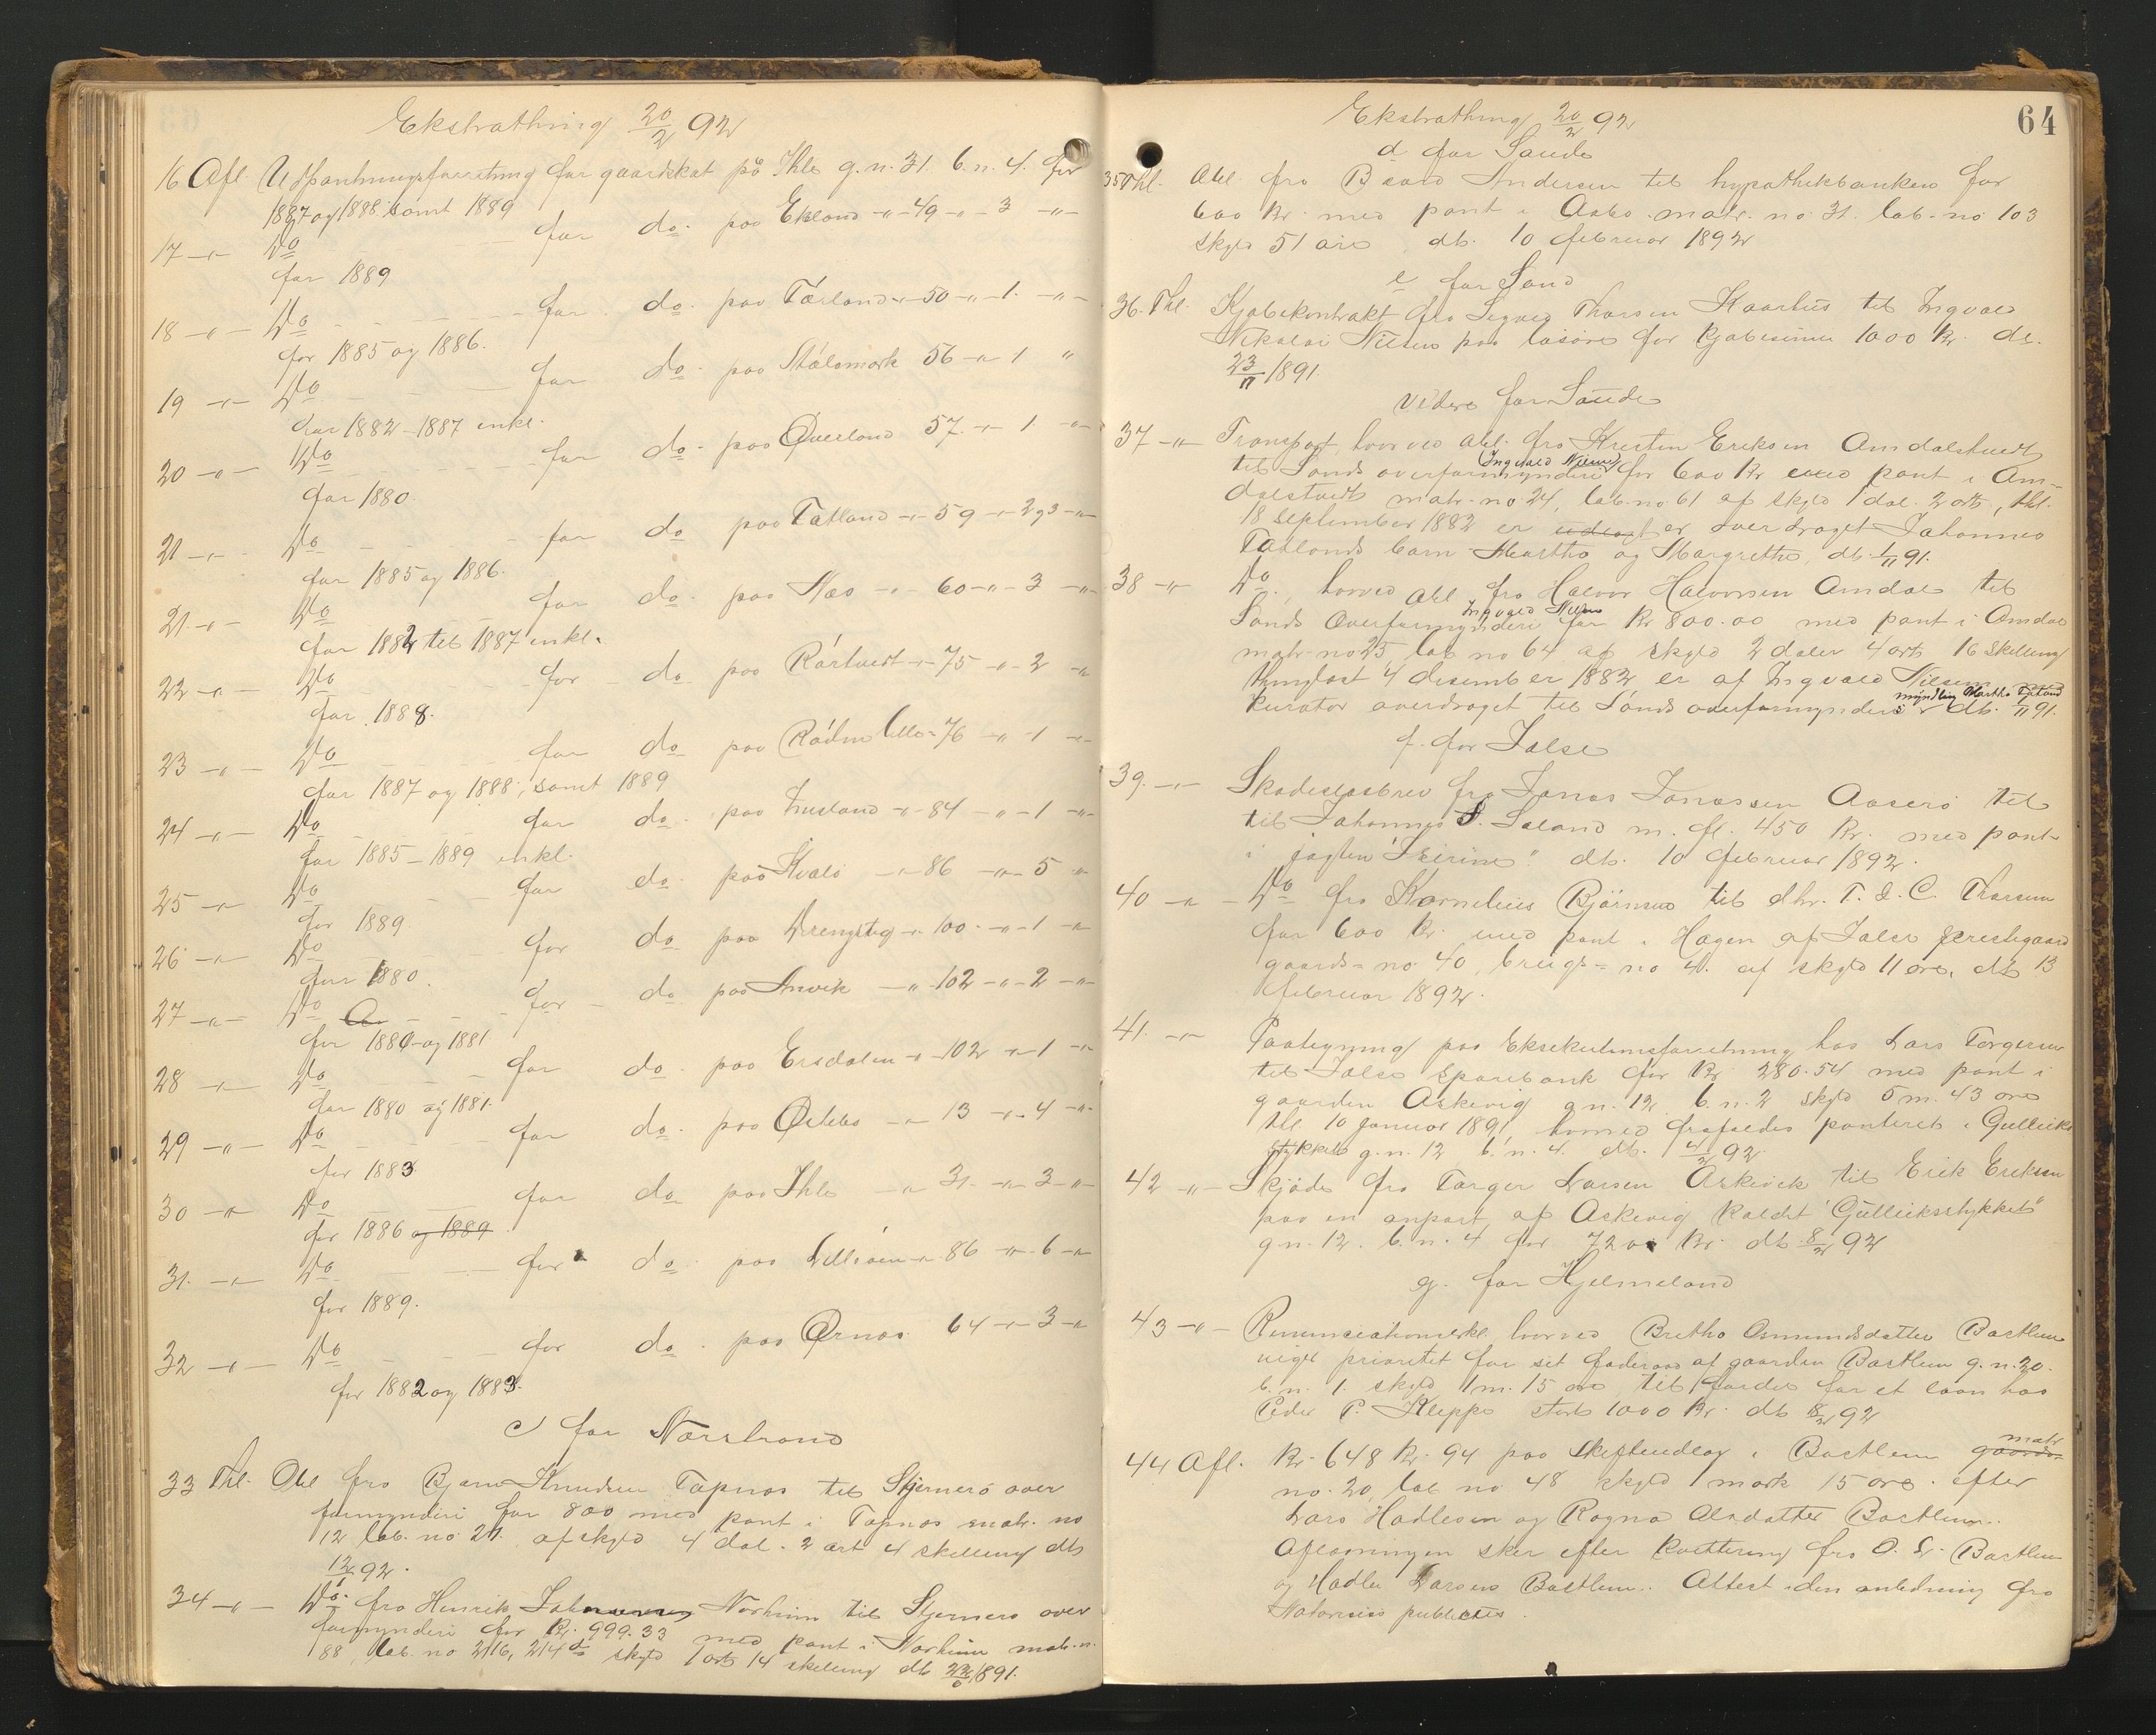 Ekstrathing 20/2 92
16 Afl. Udpantningsforretning for gaardskat på Ihle g.n. 31. b.n. 4. for
1887 og 1888 samt 1889
17 -"- Do for do. paa Ekland -"- 49 -"- 3 -"-
for 1889
18 -"- Do for do. paa Tærland -"- 50 -"- 1. -"-
for 1885 og 1886.
19 -"- Do for do. paa Stålemork 56 -"- 1 "
for 1882-1887 inkl.
20 -"- Do for do. paa Øverland 57. -"- 1 -"-
for 1880
21 -"- Do for do paa Tatland -"- 59 -"- 2 og 3 -"-
for 1885 og 1886.
21. -"- Do for do. paa Næs -"- 60 -"- 3 -"-
for 1882 til 1887 inkl.
22 -"- Do for do. paa Rørtvedt -"- 75 -"- 2 -"
for 1888.
23 -"- Do for do paa 76 -"- 1 -"-
for 1887 og 1888, samt 1889
24 -"- Do for do. paa -"- 84 -"- 1 -"-
for 1885-1889 inkl.
25 -"- Do for do. paa Kvalø -"- 86 -"- 5 -"
for 1889
26 -"- Do for do. paa Drengstig -"- 100. -"- 1 -"-
for 1880.
27 -"- Do for do paa Anvik -"- 102 -"- 2 -"-
for 1880 og 1881.
28 -"- Do for do. paa Ersdalen -"- 102 -"- 1 -"-
for 1880 og 1881.
29 -"- Do for do. paa Østebø -"- 13 -"- 4 -"-
for 1883
30 -"- Do for do paa Ihle -"- 31. -"- 3 -"-
for 1886 og 1889
31. -"- Do for do. paa -"- 86 -"- 6 -"
for 1889.
32 -"- Do for do. paa Ørnæs 64 -"- 3 -"
for 1882 og 1883.
c for Nærstrand
33 Thl. Obl fra Bjarne Knudsen Tapnæs til Stjernerø over
formynderi for 800 med pant i Tapnæs matr. no
12 løb. no 27. af skyld 4 dal. 2 ort 4 skilling dt.
12/1 92.
34 -"- Do. fra Henrik Norheim til Stjernerø over
formynderi for Kr. 999.33 med pant i Norheim matr. n.
188, løb. no 216, 214 d skyld 1 ort 14 skilling dt. 1891.
Ekstrathing 20/2 92
64
d for Saude
35 Thl. Obl. fra Baard Andersen til hypothekbanken for
600 Kr. med pant i Aabø matr. no 31. løb. no 103
skyld 51 øre dt. 10 februar 1892
e for Sand
36. Thl. Kjøbekontrakt fra Sigved Thorsen Kaarhus til Ingvald
Nikolai Nilsen paa løsøre for kjøbesum 1000 Kr. dt.
23/11 1891.
Videre for Saude
37 -"- Transport, hvorved obl. fra Kristen Eriksen Amdalstvedt
til Sands overformynderi (Ingvald Nilsen) for 600 Kr med pant i Am-
dalstvedt matr. no 24, løb. no 61 af skyld 1 dal. 2 ort, thl.
18 september 1882 er udlagt er overdraget Johannes
Tatlands barn Martha og Margretha, dt. 1/11 91.
38 -"- Do., hvorved obl. fra Halvor Halvorsen Amdal til
Sands Overformynderi Ingvald Nilsen for Kr 800.00 med pant i Amdal
matr. no 25 løb no 64 af skyld 2 daler 4 ort 16 skilling
thinglæst 4 desember 1882 er af Ingvald Nilsen med
kurator overdraget til Sands overformynderi myndling Martha Tatland dt. 1/11 91.
f. for Jelse
39. -"- Skadesløsbrev fra Jonas Jonassen Aaserø til
til Johannes S. Seland m. fl. 450 Kr. med pant
i jagten "Serine" dt. 10 februar 1892.
40 -"- Do fra Kornelius Bjørnsen til dhr. T. & C. Thorsen
for 600 Kr. med pant i Hagen af Jelse prestegaard
gaards-no 40, brugs-no 4. af skyld 11 øre, dt 13
februar 1892.
41. -"- Paategning paa Eksekutionsforretning hos Lars Torgersen
til Jelse sparebank for Kr 280.54 med pant i
gaarden Askevig g.n. 12 b.n. 2 skyld 5 m. 43 øre
thl 10 januar 1891, hvorved frafaldes panteret i Gulleiks
stykket g.n. 12 b.n. 4. dt. 4/2 92.
42 -"- Skjøde fra Torger Larsen Askevik til Erik Eriksen
paa en anpart af Askevig kaldet "Gulleiksstykket"
g.n. 12. b.n. 4 for 7200 Kr. dt. 8/2 92
g. for Hjelmeland
43 -"- Renunciationserkl. hvorved Bretha Osmundsdatter Bastlien
viger prioritet for sit føderaad af gaarden Bastlien g.n. 20.
b.n. 1. skyld 1 m. 15 øre til fordel for et laan hos
Peder P. Kleppe stort 1000 Kr. dt 8/2 92
44 Afl. Kr. 648 Kr. 94 paa skifteudlæg i Bastlien gaards- matr.
no. 20 løb no 48 skyld 1 mark 15 øre efter
Lars Hadlesen og Ragna Olsdatter Bastlien.
Aflæsningen sker efter kvittering fra O. L. Bastlien
og Hadle Larsens Bastlien. Attest i den anledning fra
Notarius publicus.